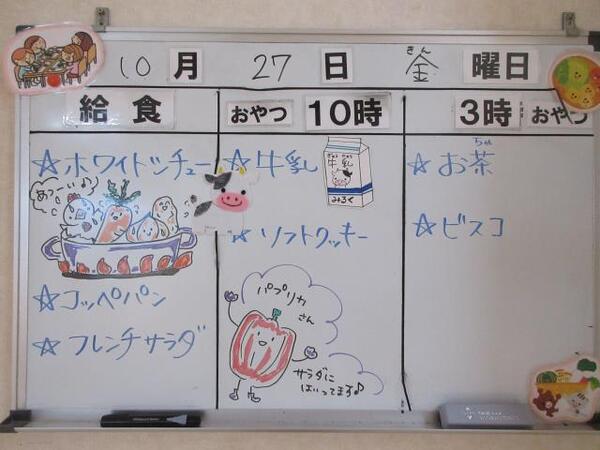 10月 27日 金曜日
きん
給食
おやつ 10時
3時 おやつ
☆ホワイトシチュー
あつーい♪
☆コッペパン
☆フレンチサラダ
☆牛乳
ぎゅう にゅう
牛乳
みるく
☆ソフトクッキー
パプリカ
さん
サラダに
はいってます♪
ちゃ
☆お茶
☆ビスコ